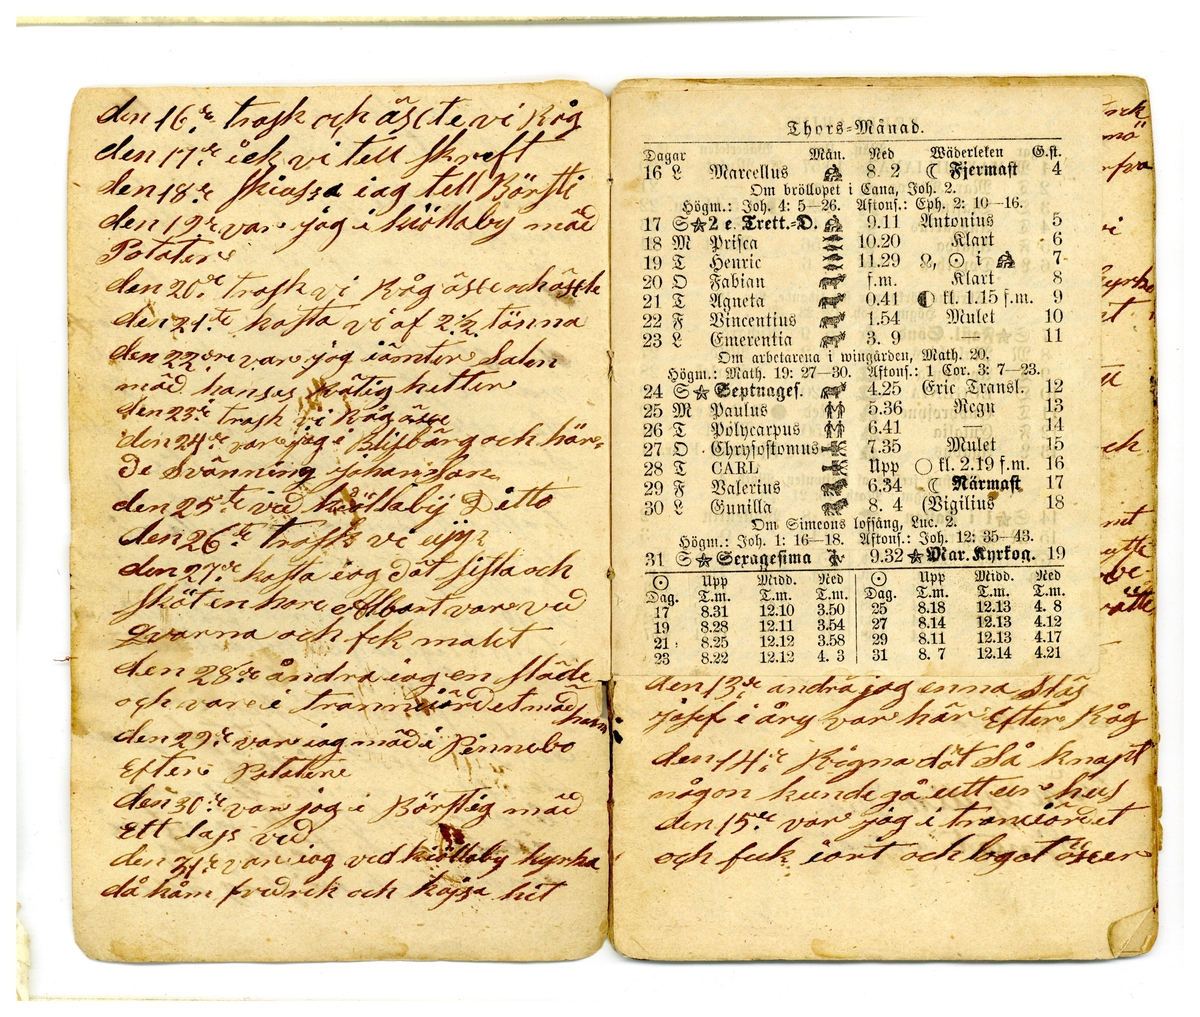 den 16de trosk och äscte vi Råg
den 17de ick vi tell skreft
den 18de skiussa iag tell Börsti
den 19de var jag i kiöllaby mäd
Potater
den 20de trosk vi Råg äste och äscte
den 21te kasta vi af 2 1/2 tönna
den 22dre var jag iämter Salen
mäd hansas kätig hetter
den 23de trosk vi Råg äsce
den 24de var jag i Busbärg och här-
de Svänning Johansson
den 25te vid kiöllabÿ Ditto
den 26te trosk vi
den 27de kasta iag dät sista och
sköt en hare Albart var ved
qvarna och fek malet
den 28de ändra iag en släde
och var i tranneiördet mäd
den 29de var iag mäd i Pinnebo
Efter Potater
den 30de var jag i Börstig mäd
Ett lass ved
den 31te var iag ved kiöllaby kyrka
då kåm fredrek och kajsa hit
Thors-Månad.
Dagar Mån. Ned Wäderleken G.st.
16 L Marcellus 8. 2 ☾ Fjermast 4
Om bröllopet i Cana, Joh. 2.
Högm.: Joh. 4: 5—26. Aftons.: Eph. 2: 10—16.
17 S ★ 2 e. Trett.-D. 9.11 Antonius 5
18 M Prisca 10.20 Klart 6
19 T Henric 11.29 ☊, ☉ i ♒ 7
20 O Fabian f.m. Klart 8
21 T Agneta 0.41 ◐ kl. 1.15 f.m. 9
22 F Vincentius 1.54 Mulet 10
23 L Emerentia 3. 9 — 11
Om arbetarena i wingården, Math. 20.
Högm.: Math. 19: 27—30. Aftons.: 1 Cor. 3: 7—23.
24 S ★ Septuages. 4.25 Eric Transl. 12
25 M Paulus 5.36 Regn 13
26 T Polycarpus 6.41 14
27 O Chrysostomus 7.35 Mulet 15
28 T CARL Upp ○ kl. 2.19 f.m. 16
29 F Valerius 6.34 ☾ Närmast 17
30 L Gunilla 8. 4 (Vigilius 18
Om Simeons lofsång, Luc. 2.
Högm.: Joh. 1: 16—18. Aftons.: Joh. 12: 35—43.
31 S ★ Sexagesima 9.32 ★ Mar. Kyrkog. 19
☉ Upp Midd. Ned ☉ Upp Midd. Ned
Dag. T.m. T.m. T.m. Dag. T.m. T.m. T.m.
17 8.31 12.10 3.50 25 8.18 12.13 4. 8
19 8.28 12.11 3.54 27 8.14 12.13 4.12
21 8.25 12.12 3.58 29 8.11 12.13 4.17
23 8.22 12.12 4. 3 31 8. 7 12.14 4.21
den 13de andra jag enna Släs
josef i åry var här Efter Råg
den 14de Rigna dät så knapt
någon kunde gå utt ur hus
den 15de var jag i traneiördet
och fuck iort och logat